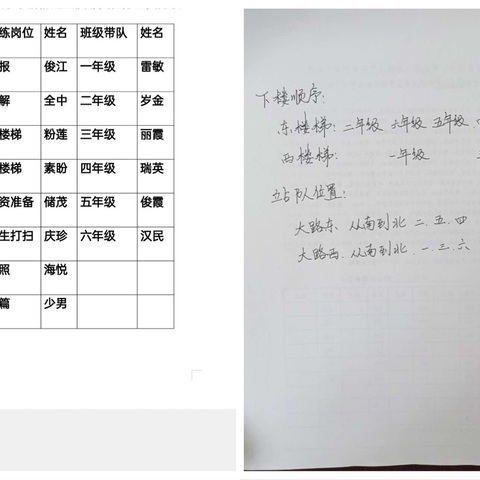 练岗位 姓名 班级带队 姓名
报 俊江 一年级 雷敏
解 全中 二年级 岁金
楼梯 粉莲 三年级 丽霞
楼梯 素盼 四年级 瑞英
资准备 储茂 五年级 俊霞
生打扫 庆珍 六年级 汉民
照 海悦
篇 少男
下楼顺序:
东楼梯: 二年级 六年级 五年级
西楼梯: 一年级
站队位置:
大路东 从南到北 二.五.四
大路西.从南到北.一.三.六